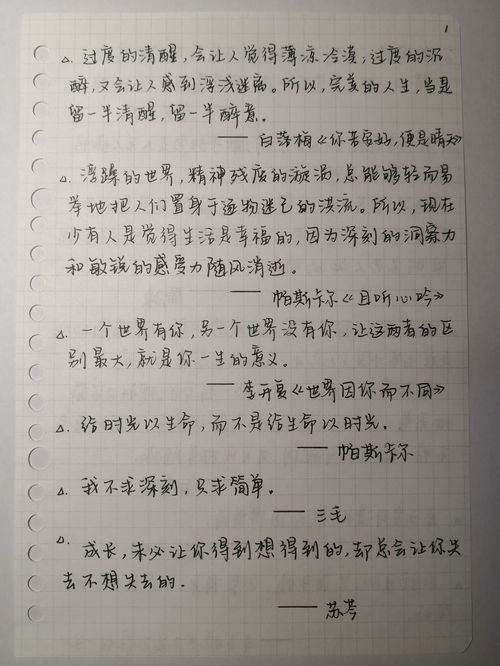 1
△. 过度的清醒，会让人觉得薄凉冷漠；过度的沉
醉，又会让人感到浮浅迷离。所以，完美的人生，当是
留一半清醒，留一半醉意。
—— 白落梅《你若安好，便是晴天》
△. 浮躁的世界，精神残废的漩涡，总能够轻而易
举地把人们置身于逐物迷己的洪流。所以，现在
少有人是觉得生活是幸福的，因为深刻的洞察力
和敏锐的感受力随风消逝。
—— 帕斯卡尔《且听心吟》
△. 一个世界有你，另一个世界没有你，让这两者的区
别最大，就是你一生的意义。
—— 李开复《世界因你而不同》
△. 给时光以生命，而不是给生命以时光。
—— 帕斯卡尔
△. 我不求深刻，只求简单。
—— 三毛
△. 成长，未必让你得到想得到的，却总会让你失
去不想失去的。
—— 苏芩